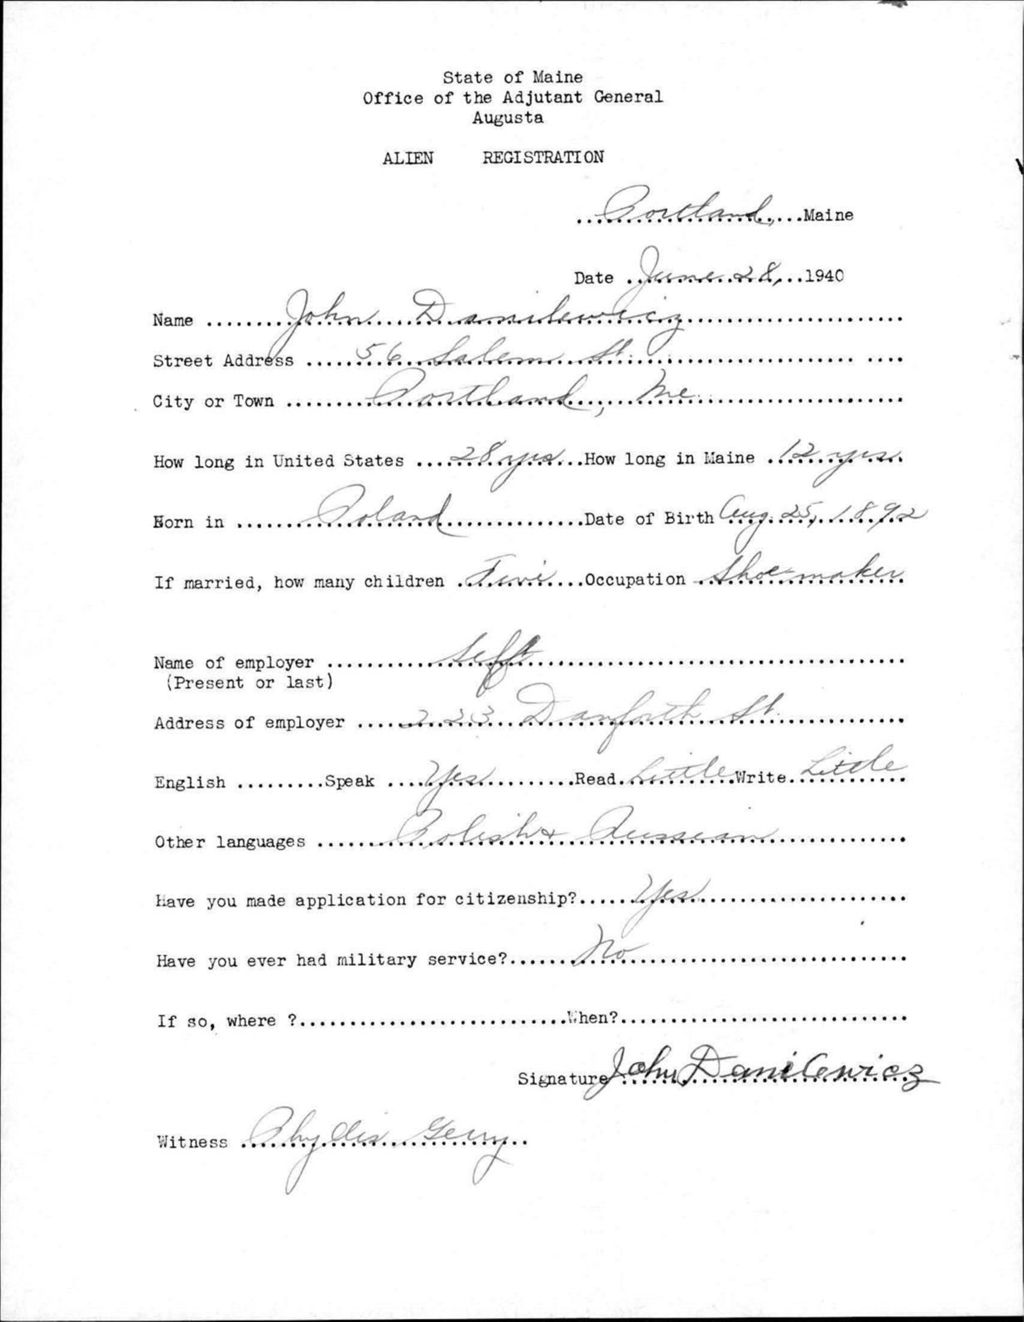 State of Maine
Office of the Adjutant General
Augusta
ALIEN REGISTRATION
Portland, Maine
Date June 28, 1940
Name John Danilewicz
Street Address 56 Salem St.
City or Town Portland, Me.
How long in United States 28 yrs How long in Maine 12 yrs
Born in Poland Date of Birth Aug. 25, 1892
If married, how many children Five Occupation Shoemaker
Name of employer Self
(Present or last)
Address of employer 223 Danforth St.
English Speak Yes Read Little Write Little
Other languages Polish & Russian
Have you made application for citizenship? Yes
Have you ever had military service? No
If so, where ? When?
Signature John Danilewicz
Witness Phyllis Gerry